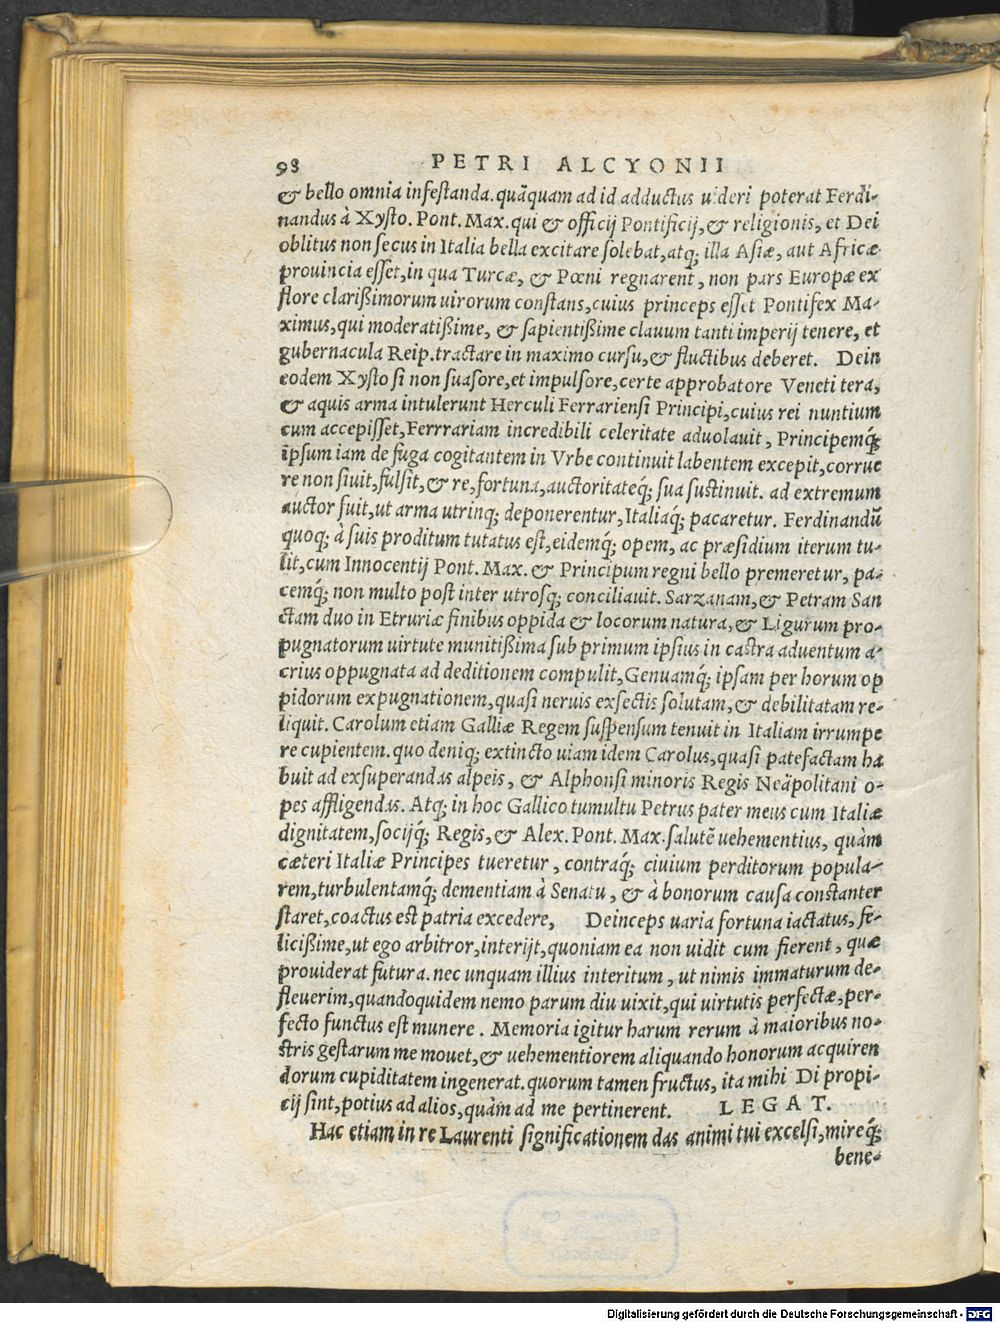 98 PETRI ALCYONII
& bello omnia infestanda. quāquam ad id adductus uideri poterat Ferdi-
nandus à Xysto. Pont. Max. qui & officij Pontificij, & religionis, et Dei
oblitus non secus in Italia bella excitare solebat, atq; illa Asiæ, aut Africæ
prouincia esset, in qua Turcæ, & Pœni regnarent, non pars Europæ ex
flore clarißimorum uirorum constans, cuius princeps esset Pontifex Ma-
ximus, qui moderatißime, & sapientißime clauum tanti imperij tenere, et
gubernacula Reip. tractare in maximo cursu, & fluctibus deberet. Dein
eodem Xysto si non suasore, et impulsore, certe approbatore Veneti tera,
& aquis arma intulerunt Herculi Ferrariensi Principi, cuius rei nuntium
cum accepisset, Ferrrariam incredibili celeritate aduolauit, Principemq́;
ipsum iam de fuga cogitantem in Vrbe continuit labentem excepit, corrue
re non siuit, fulsit, & re, fortuna, auctoritateq́; sua sustinuit. ad extremum
auctor fuit, ut arma utrinq; deponerentur, Italiaq́; pacaretur. Ferdinandū
quoq; à suis proditum tutatus est, eidemq́; opem, ac præsidium iterum tu-
lit, cum Innocentij Pont. Max. & Principum regni bello premeretur, pa-
cemq́; non multo post inter utrosq; conciliauit. Sarzanam, & Petram San
ctam duo in Etruriæ finibus oppida & locorum natura, & Ligurum pro-
pugnatorum uirtute munitißima sub primum ipsius in castra aduentum a-
crius oppugnata ad deditionem compulit, Genuamq́; ipsam per horum op
pidorum expugnationem, quasi neruis exsectis solutam, & debilitatam re-
liquit. Carolum etiam Galliæ Regem suspensum tenuit in Italiam irrumpe
re cupientem. quo deniq; extincto uiam idem Carolus, quasi patefactam ha
buit ad exsuperandas alpeis, & Alphonsi minoris Regis Neäpolitani o-
pes affligendas. Atq; in hoc Gallico tumultu Petrus pater meus cum Italiæ
dignitatem, socijq́; Regis, & Alex. Pont. Max. salutē uehementius, quàm
cæteri Italiæ Principes tueretur, contraq́; ciuium perditorum popula-
rem, turbulentamq́; dementiam à Senatu, & à bonorum causa constanter
staret, coactus est patria excedere, Deinceps uaria fortuna iactatus, fe-
licißime, ut ego arbitror, interijt, quoniam ea non uidit cum fierent, quæ
prouiderat futura. nec unquam illius interitum, ut nimis immaturum de-
fleuerim, quandoquidem nemo parum diu uixit, qui uirtutis perfectæ, per-
fecto functus est munere. Memoria igitur harum rerum à maioribus no-
stris gestarum me mouet, & uehementiorem aliquando honorum acquiren
dorum cupiditatem ingenerat. quorum tamen fructus, ita mihi Di propi-
cij sint, potius ad alios, quàm ad me pertinerent. LEGAT.
Hac etiam in re Laurenti significationem das animi tui excelsi, mireq́;
bene-
Digitalisierung gefördert durch die Deutsche Forschungsgemeinschaft - DFG